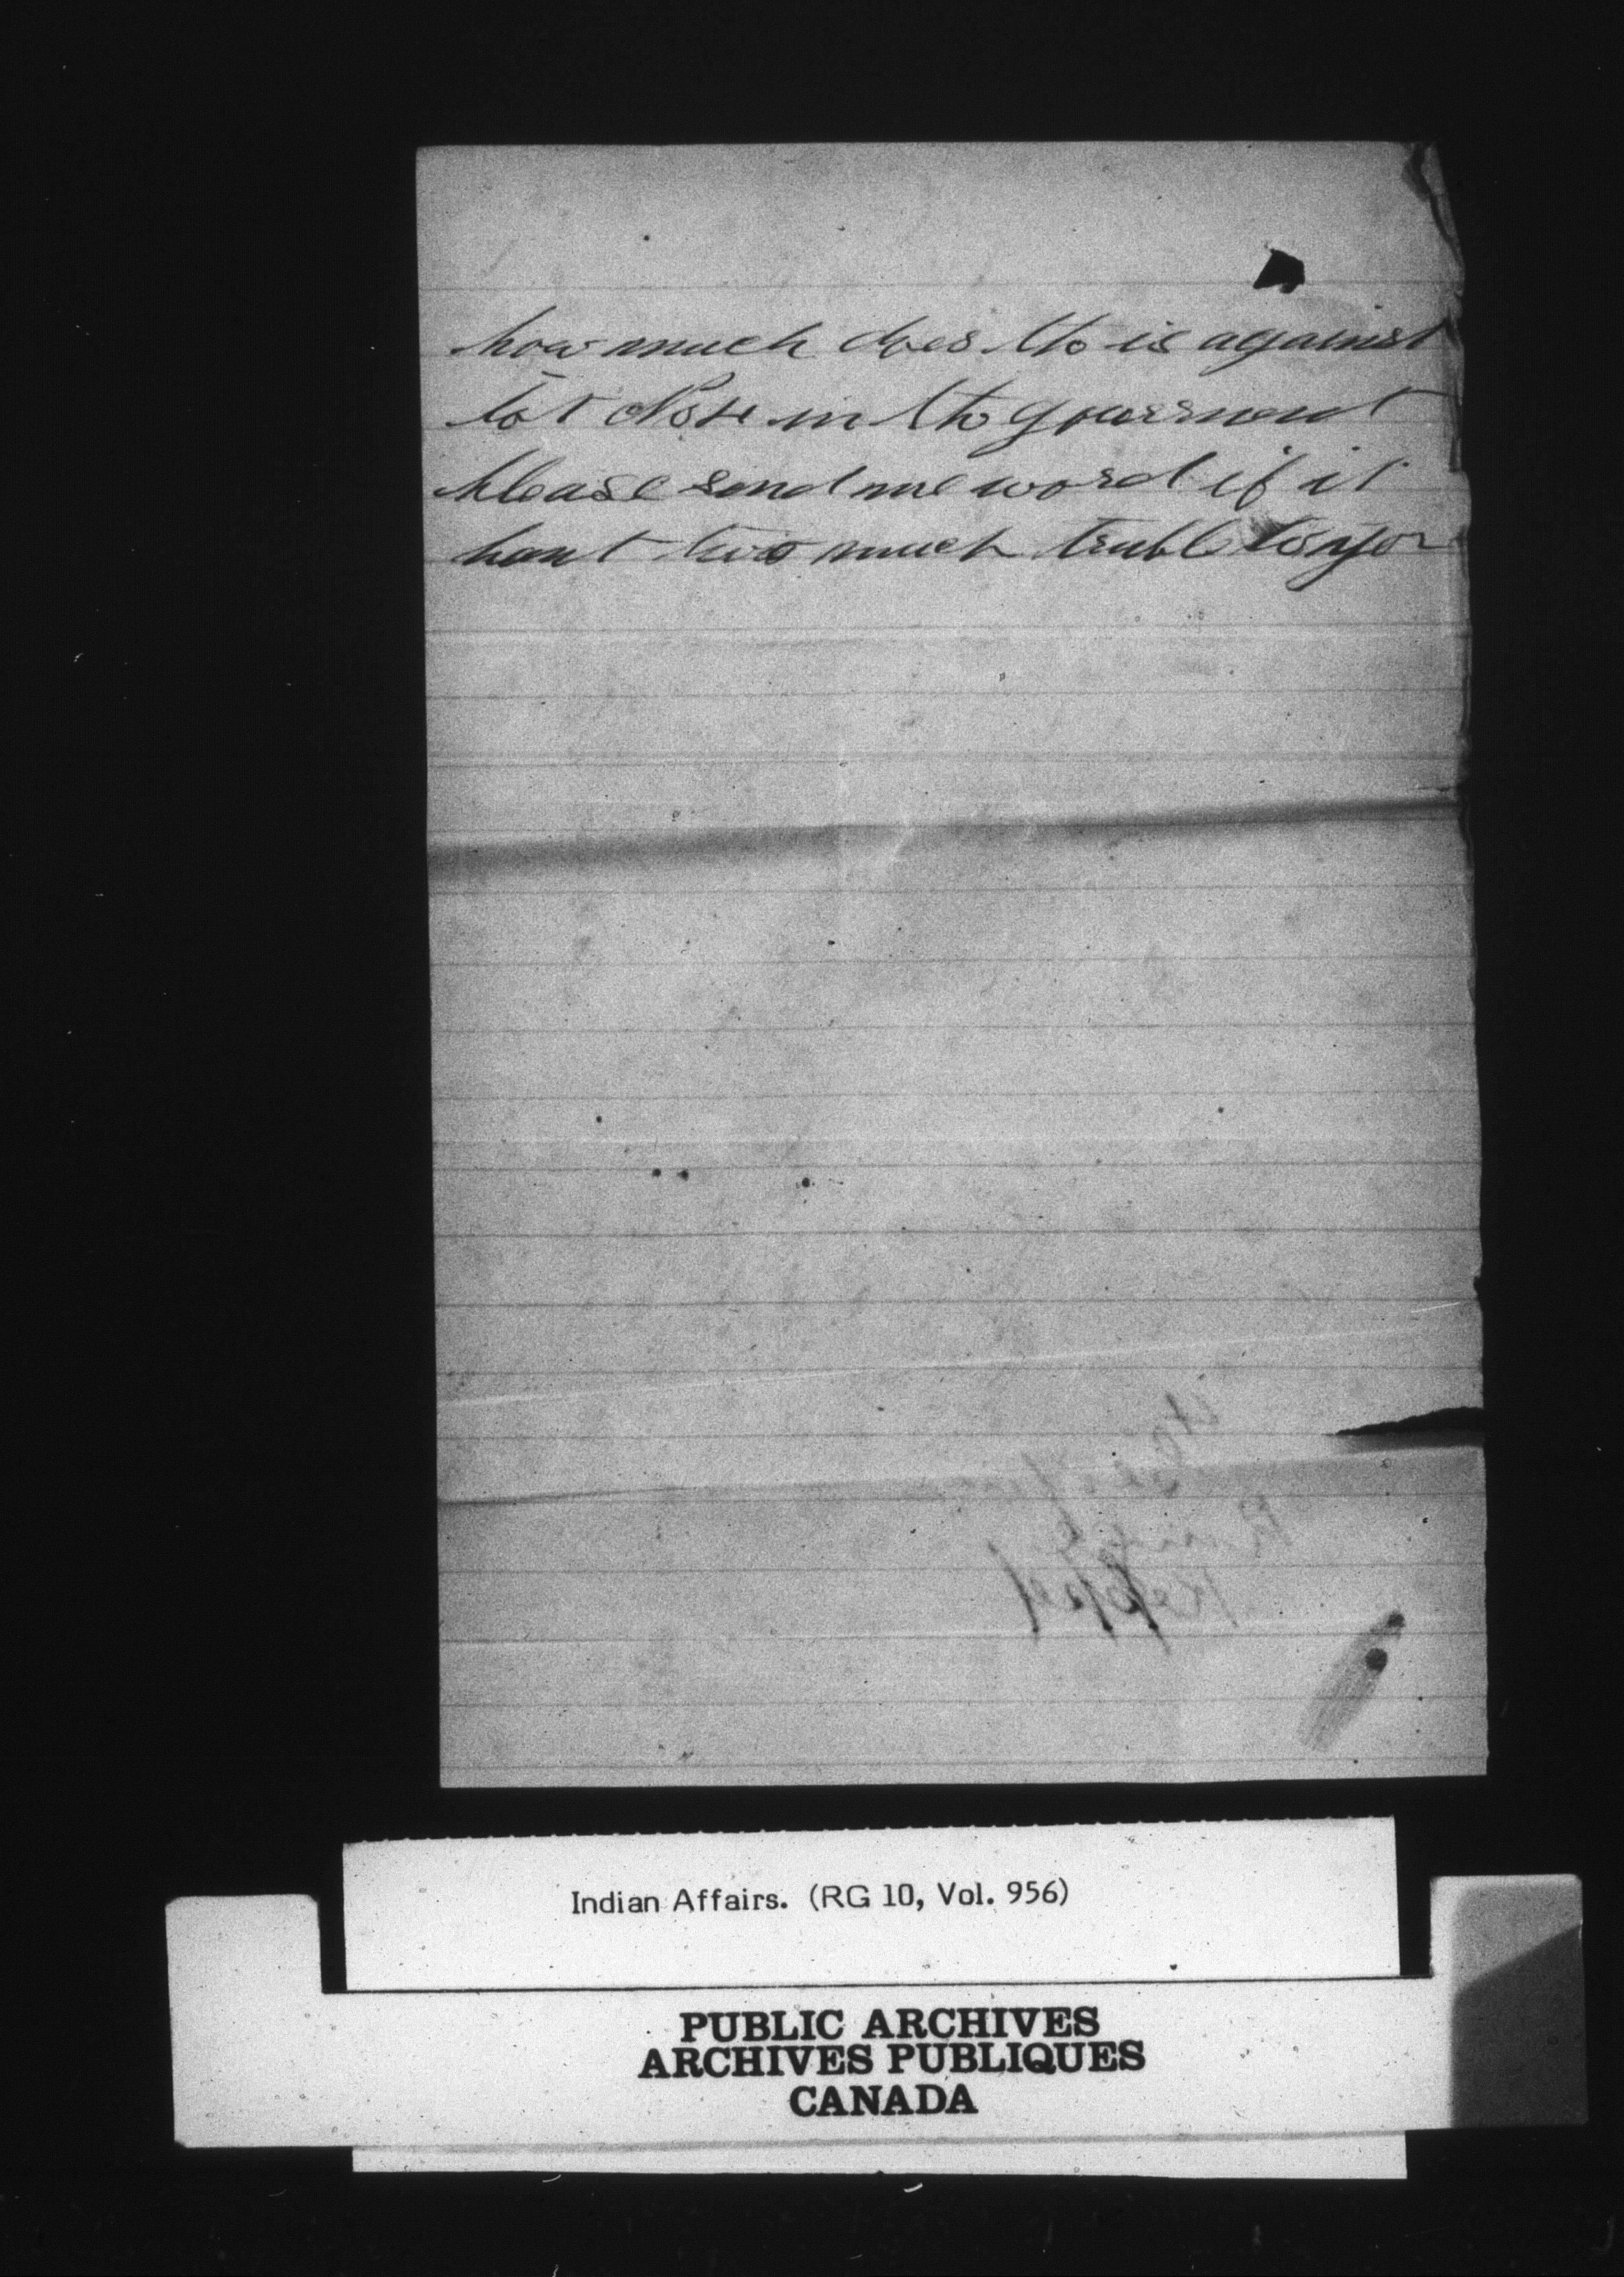 how much does tho is against
lot No 14 in tho goverment
Please send me word if it
hant two much truble to yor
Keppel
Indian Affairs. (RG 10, Vol. 956)
PUBLIC ARCHIVES
ARCHIVES PUBLIQUES
CANADA